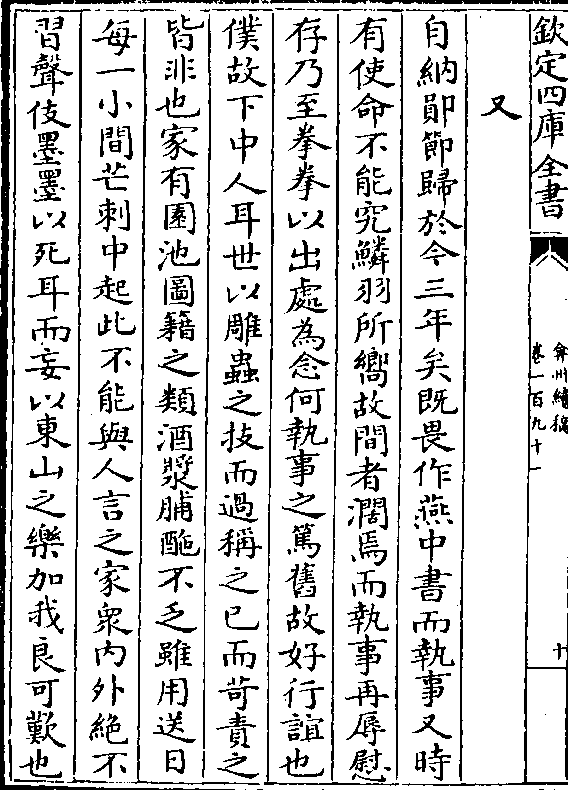 欽定四庫全書
弇州續稿
卷一百九十一
十
又
自納鄖節歸於今三年矣既畏作燕中書而執事又時
有使命不能究鱗羽所嚮故間者濶焉而執事再辱慰
存乃至拳拳以出處為念何執事之篤舊故好行誼也
僕故下中人耳世以雕蟲之技而過稱之已而苛責之
皆非也家有園池圖籍之類酒漿脯醢不乏雖用送日
每一小間芒刺中起此不能與人言之家衆内外絶不
習聲伎墨墨以死耳而妄以東山之樂加我良可歎也